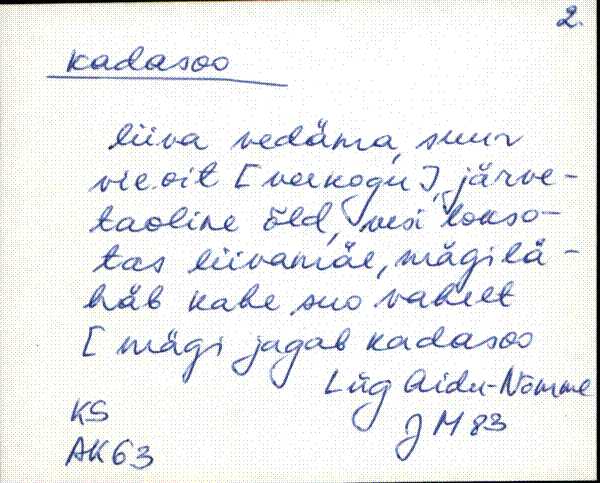 2.
kadasoo
liiva vedäma, suur
vieoit [veekogu], järve-
taoline õld, vesi lokso-
tas liivamäe, mägi lä-
häb kahe suo vahelt
[mägi jagab kadasoo
Lüg Aidu-Nõmme
KS
JM 83
AK63